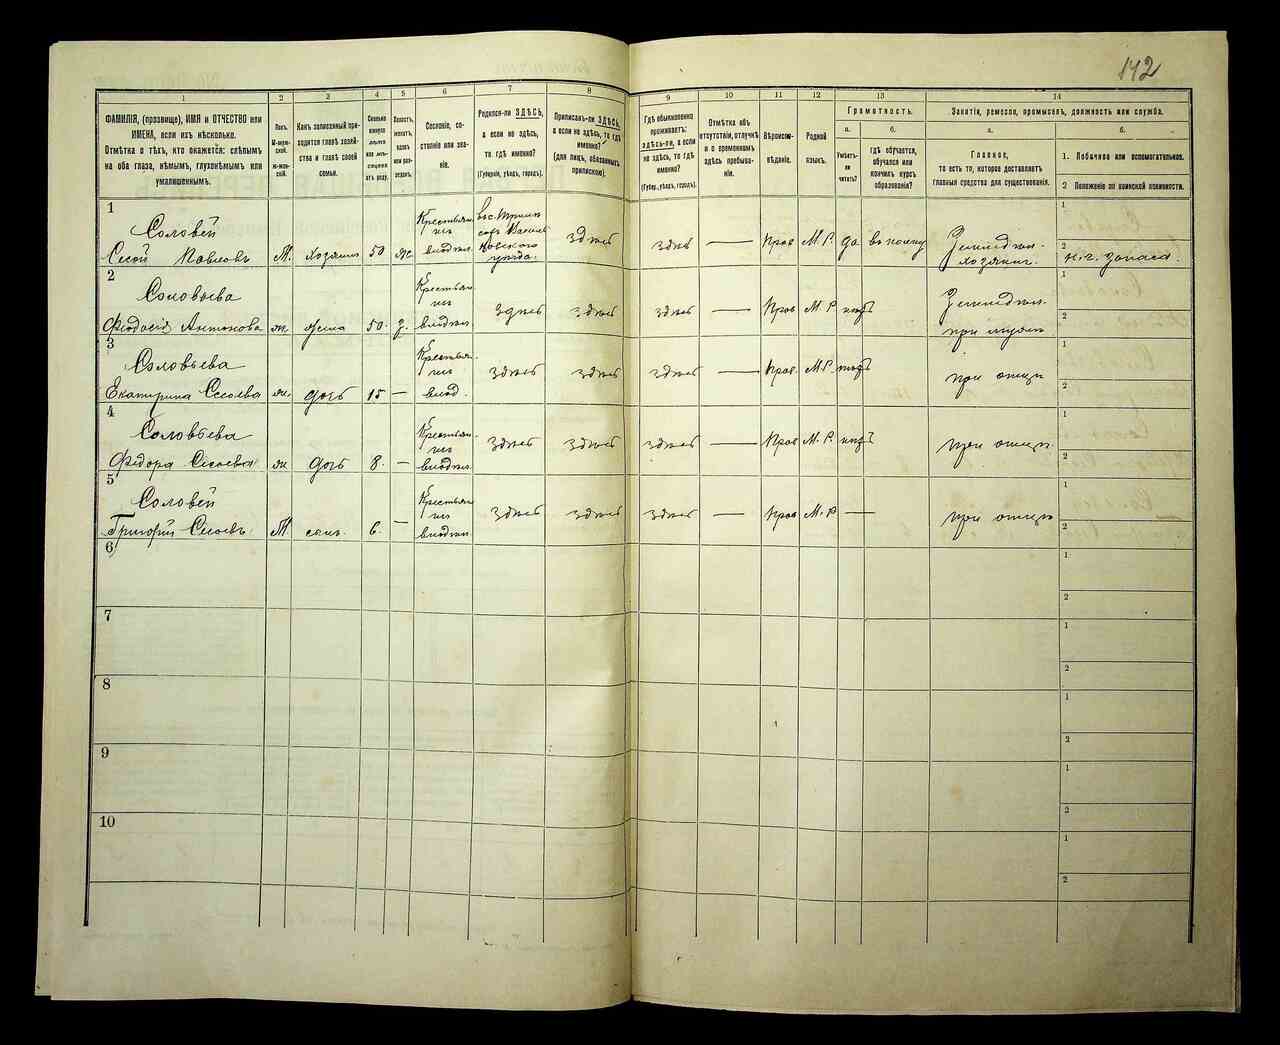 142
1
2
3
4
5
6
7
8
9
10
11
12
13
14
ФАМИЛІЯ, (прозвище), ИМЯ и ОТЧЕСТВО или
ИМЕНА, если ихъ нѣсколько.
Отмѣтка о тѣхъ, кто окажется: слѣпымъ
на оба глаза, нѣмымъ, глухонѣмымъ или
умалишеннымъ.
Полъ.
М-муж-
ской.
ж-жен-
скій.
Какъ записанный при-
ходится главѣ хозяй-
ства и главѣ своей
семьи.
Сколько
минуло
лѣтъ
или мѣ-
сяцевъ
отъ роду.
Холостъ,
женатъ,
вдовъ
или раз-
веденъ.
Сословіе, со-
стояніе или зва-
ніе.
Родился-ли ЗДѢСЬ,
а если не здѣсь,
то гдѣ именно?
(Губернія, уѣздъ, городъ).
Приписанъ-ли ЗДѢСЬ,
а если не здѣсь, то гдѣ
именно?
(для лицъ, обязанныхъ
припискою).
Гдѣ обыкновенно
проживаетъ:
здѣсь-ли, а если
не здѣсь, то гдѣ
именно?
(Губер., уѣздъ, городъ).
Отмѣтка объ
отсутствіи, отлучкѣ
и о временномъ
здѣсь пребыва-
ніи.
Вѣроиспо-
вѣданіе.
Родной
языкъ.
Грамотность.
а.
б.
Умѣетъ-
ли
читать?
гдѣ обучается,
обучался или
кончилъ курсъ
образованія?
Занятіе, ремесло, промыселъ, должность или служба.
а.
б.
Главное,
то есть то, которое доставляетъ
главныя средства для существованія.
1. Побочное или вспомогательное.
2 Положеніе по воинской повинности.
1
Соловей
Сысой Павловъ М. хозяинъ 50 ж. Крестьян- инъ владѣл. здѣсь здѣсь — Прав М.Р. да Земледѣл. хозяинъ.
1
2
2
Соловьева
Феодосія Антонова ж. жена 50. з. Крестьян- владѣл. здѣсь здѣсь здѣсь — Прав М.Р. нѣтъ Земледѣл. при мужѣ
1
2
3
Соловьева
Екатерина Сысоева ж. дочь 15 — Крестьян- влад. здѣсь здѣсь здѣсь — Прав. М.Р. нѣтъ при отцѣ
1
2
4
Соловьева
Федора Сысоева ж дочь 8. — Крестьян- владѣл. здѣсь здѣсь здѣсь — Прав М.Р. нѣтъ при отцѣ.
1
2
5
Соловей
Григорій Сысоевъ М сынъ. 6. — Крестьян- владѣл здѣсь здѣсь здѣсь — Прав М.Р — при отцѣ
1
2
6
1
2
7
1
2
8
1
2
9
1
2
10
1
2